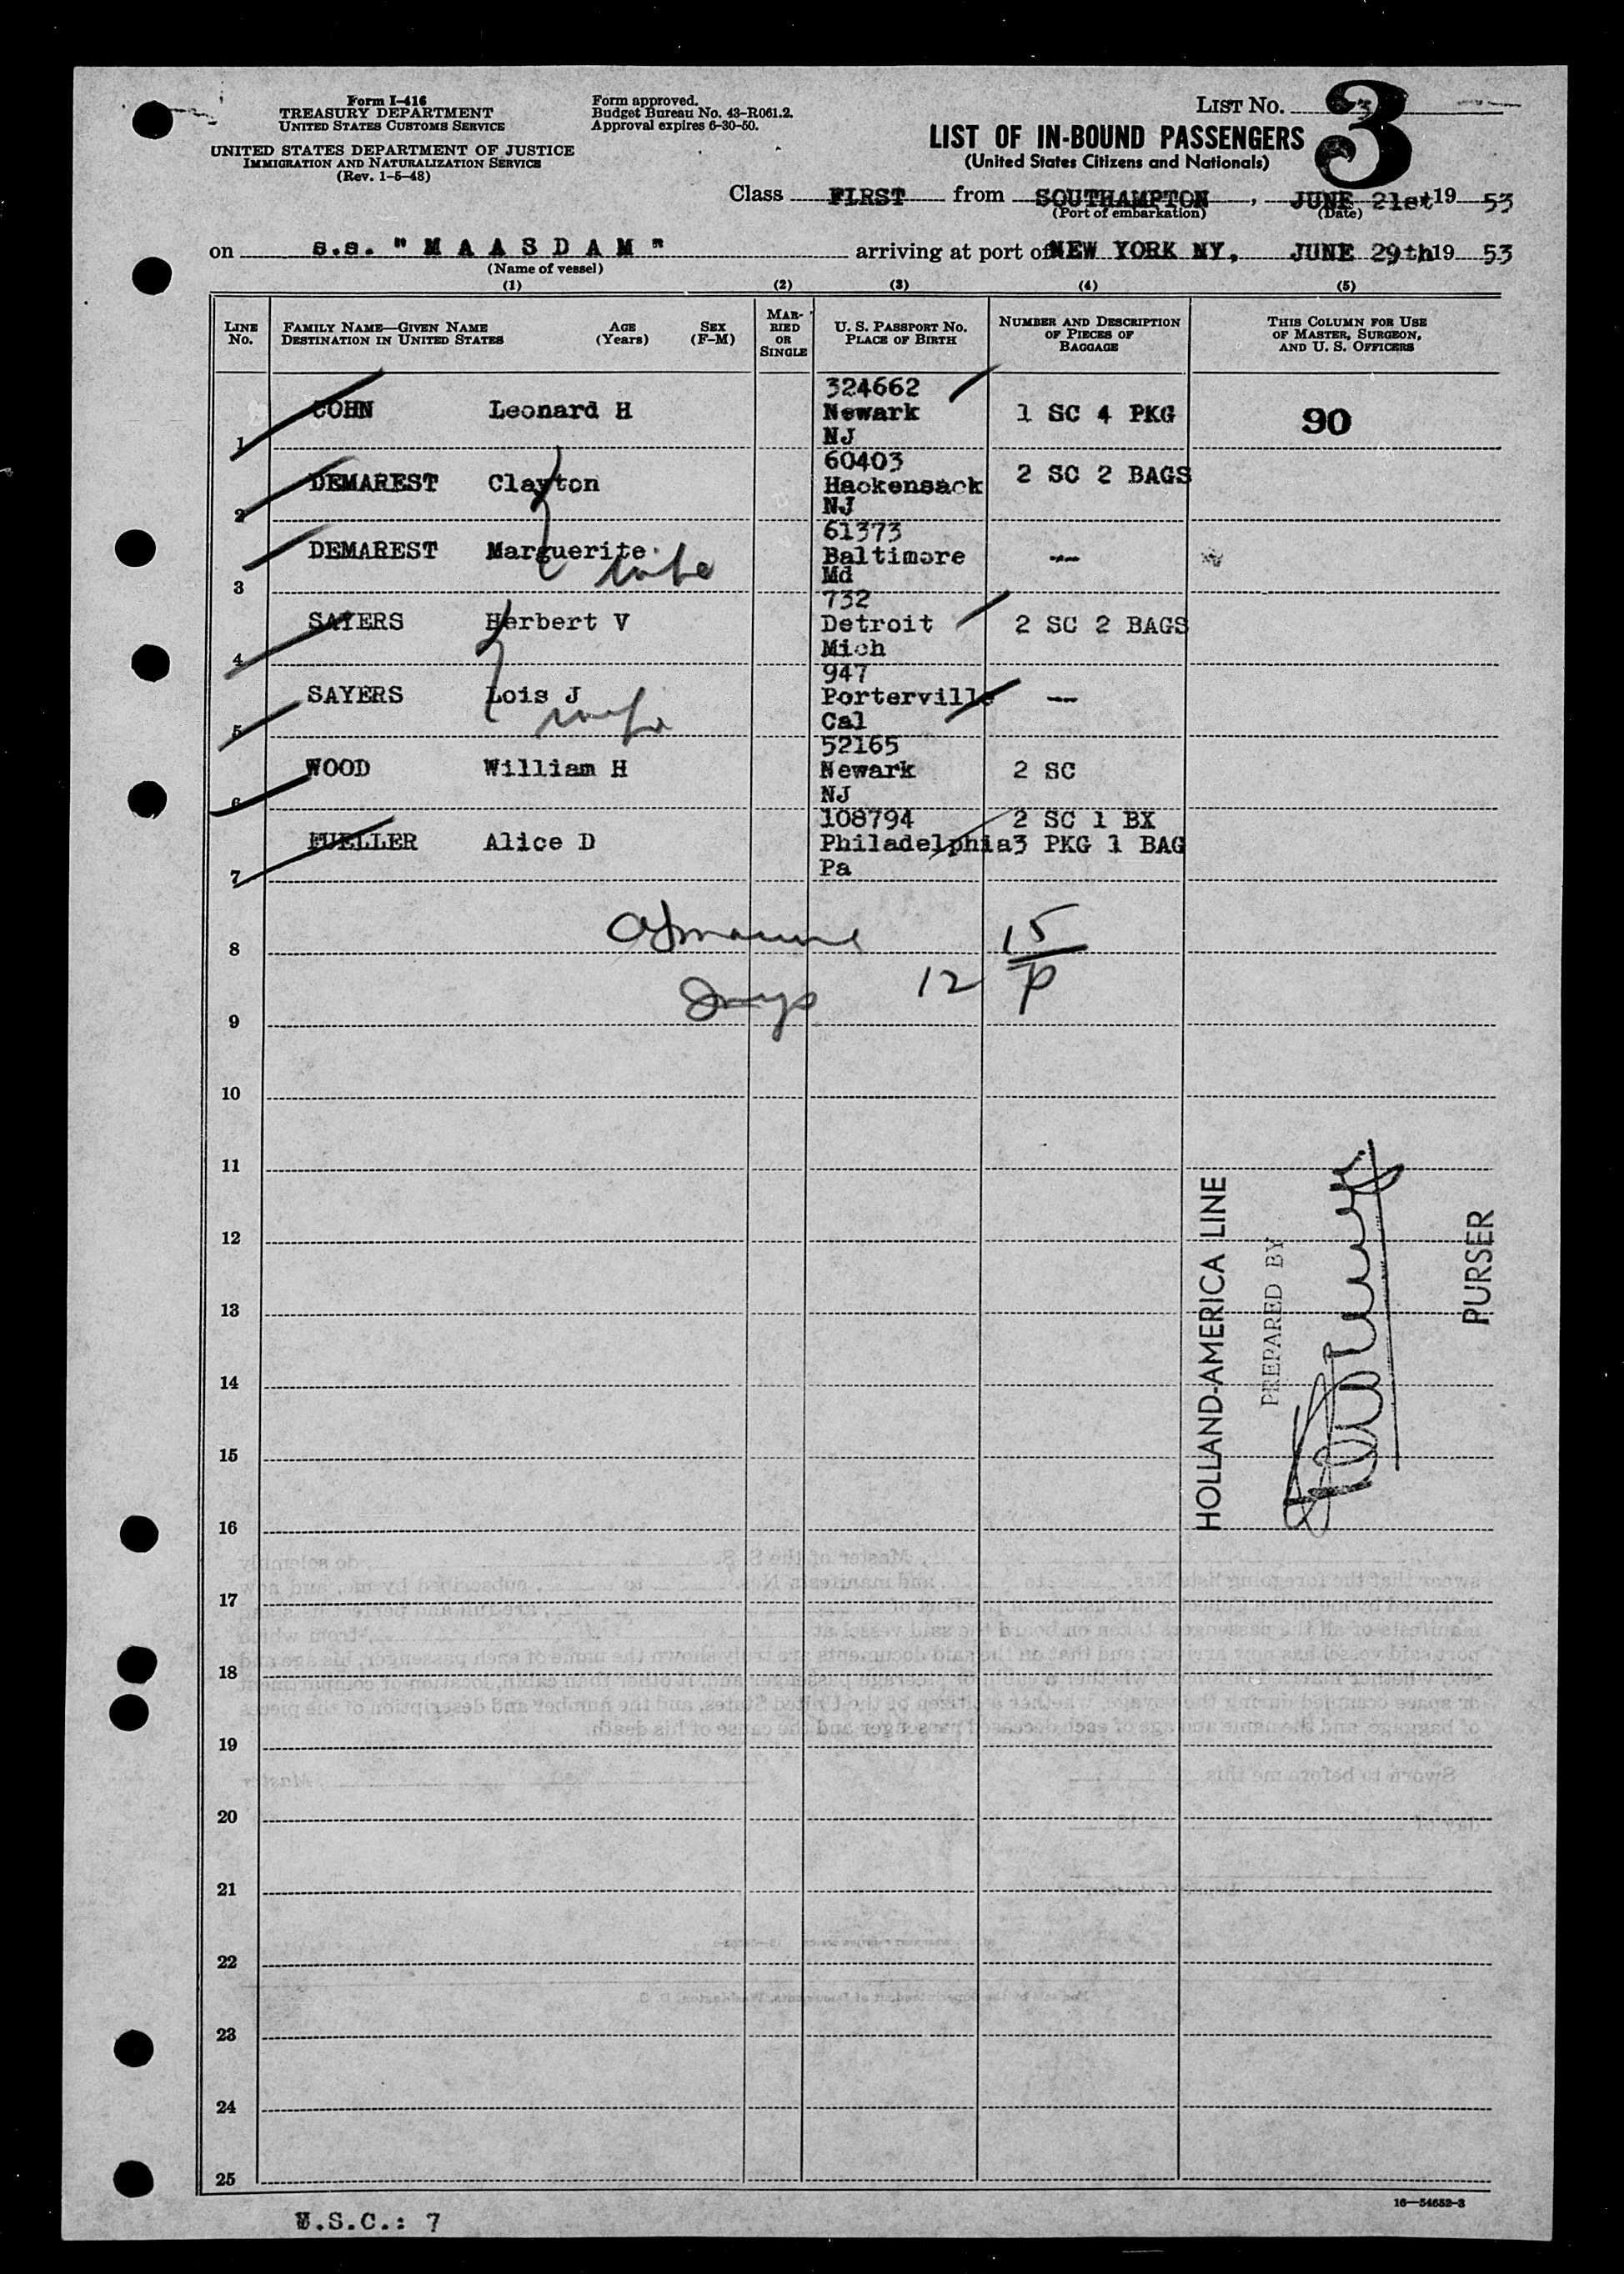 Form I-416
TREASURY DEPARTMENT
UNITED STATES CUSTOMS SERVICE
UNITED STATES DEPARTMENT OF JUSTICE
IMMIGRATION AND NATURALIZATION SERVICE
(Rev. 1-5-48)
Form approved.
Budget Bureau No. 43-R061.2.
Approval expires 6-30-50.
LIST NO. 3
3
LIST OF IN-BOUND PASSENGERS
(United States Citizens and Nationals)
Class FIRST from SOUTHAMPTON, JUNE 21st 19 53
(Port of embarkation) (Date)
on s.s. "M A A S D A M" arriving at port of NEW YORK NY, JUNE 29th 19 53
(Name of vessel)
(1) (2) (3) (4) (5)
LINE NO.
FAMILY NAME—GIVEN NAME
DESTINATION IN UNITED STATES
AGE (Years)
SEX (F-M)
MARRIED OR SINGLE
U. S. PASSPORT NO.
PLACE OF BIRTH
NUMBER AND DESCRIPTION
OF PIECES OF
BAGGAGE
THIS COLUMN FOR USE
OF MASTER, SURGEON,
AND U. S. OFFICERS
324662
COHN Leonard H Newark 1 SC 4 PKG 90
1 NJ
60403
DEMAREST Clayton Hackensack 2 SC 2 BAGS
2 NJ
61373
DEMAREST Marguerite Baltimore --
wife
3 Md
732
SAYERS Herbert V Detroit 2 SC 2 BAGS
4 Mich
947
SAYERS Lois J Porterville --
wife
5 Cal
52165
WOOD William H Newark 2 SC
6 NJ
108794 2 SC 1 BX
Alice D Philadelphia 3 PKG 1 BAG
7 Pa
15
8
12 P
9
10
11
12
13
14
15
16
17
18
19
20
21
22
23
24
25
HOLLAND-AMERICA LINE
PREPARED BY
PURSER
16—54652-3
U.S.C.: 7